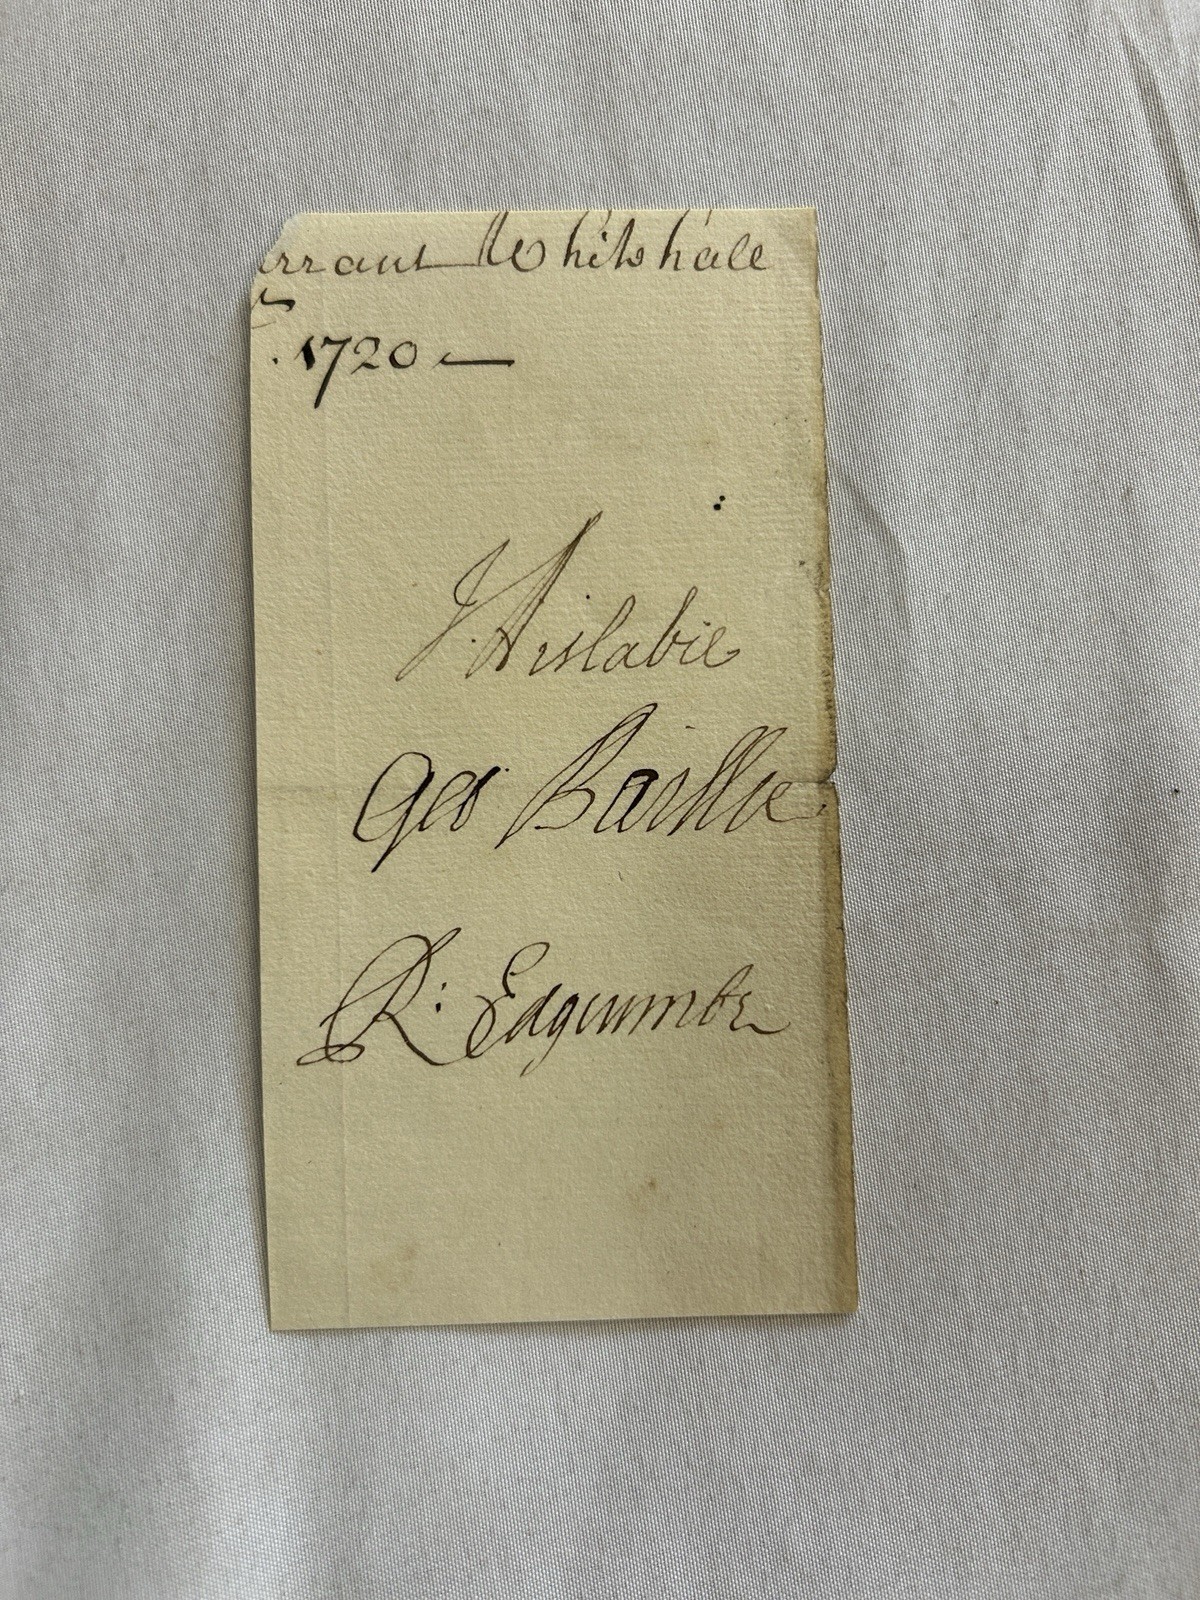 rrant Whitehall
. 1720 —
J. Aislabie
Geo Baillie
R: Edgcumbe